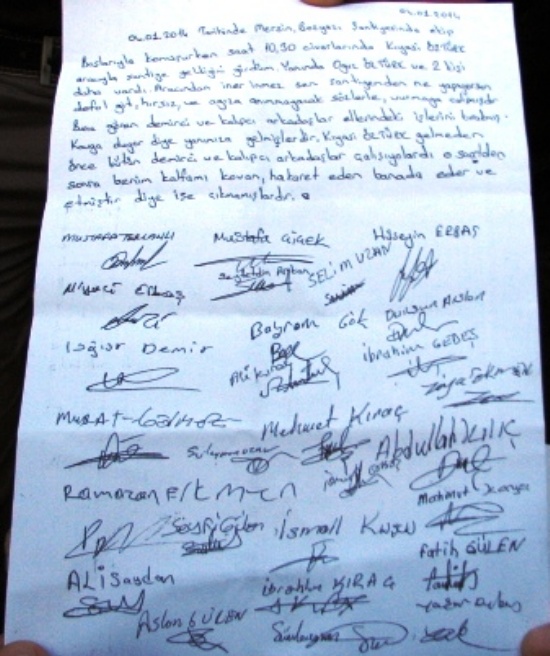 04.01.2014
04.01.2014 Tarihinde Mersin, Bozyazı Şantiyesinde ekip
Başlarıyla konuşurken saat 10,30 civarlarında Kıyasi ÖZTÜRK
aracıyla şantiye geldiğini gördüm. Yanında Oğuz ÖZTÜRK ve 2 kişi
daha vardı. Aracından iner inmez sen şantiyemden ne yapıyorsun
defol git, hırsız, ve ağıza alınmayacak sözlerle, vurmaya çalışmıştır
Bunu gören demirci ve kalıpçı arkadaşlar ellerindeki işlerini bırakmış.
Kavga doğar diye yanımıza gelmişlerdir. Kıyasi ÖZTÜRK gelmeden
önce bütün demirci ve kalıpçı arkadaşlar çalışıyolardı o saatden
sonra benim kalfamı kovan, hakaret eden banada eder ve
etmiştir diye işe çıkmamışlardır.
MUSTAFA TERCANLI Mustafa ÇİÇEK Hüseyin ERBAŞ
SELİM UZAN
Niyazi Erbaş
Bayram Gök Dursun Aslan
Uğur Demir Ali İbrahim GÜDEŞ
MURAT
Mehmet Kıraç
Süleyman Abdullah KILIÇ
Ramazan EKMEN
Mahmut
İsmail Kuşu
Fatih GÜLEN
ALİ Saydan
İbrahim KIRAÇ
Aslan GÜLEN
Süleyman